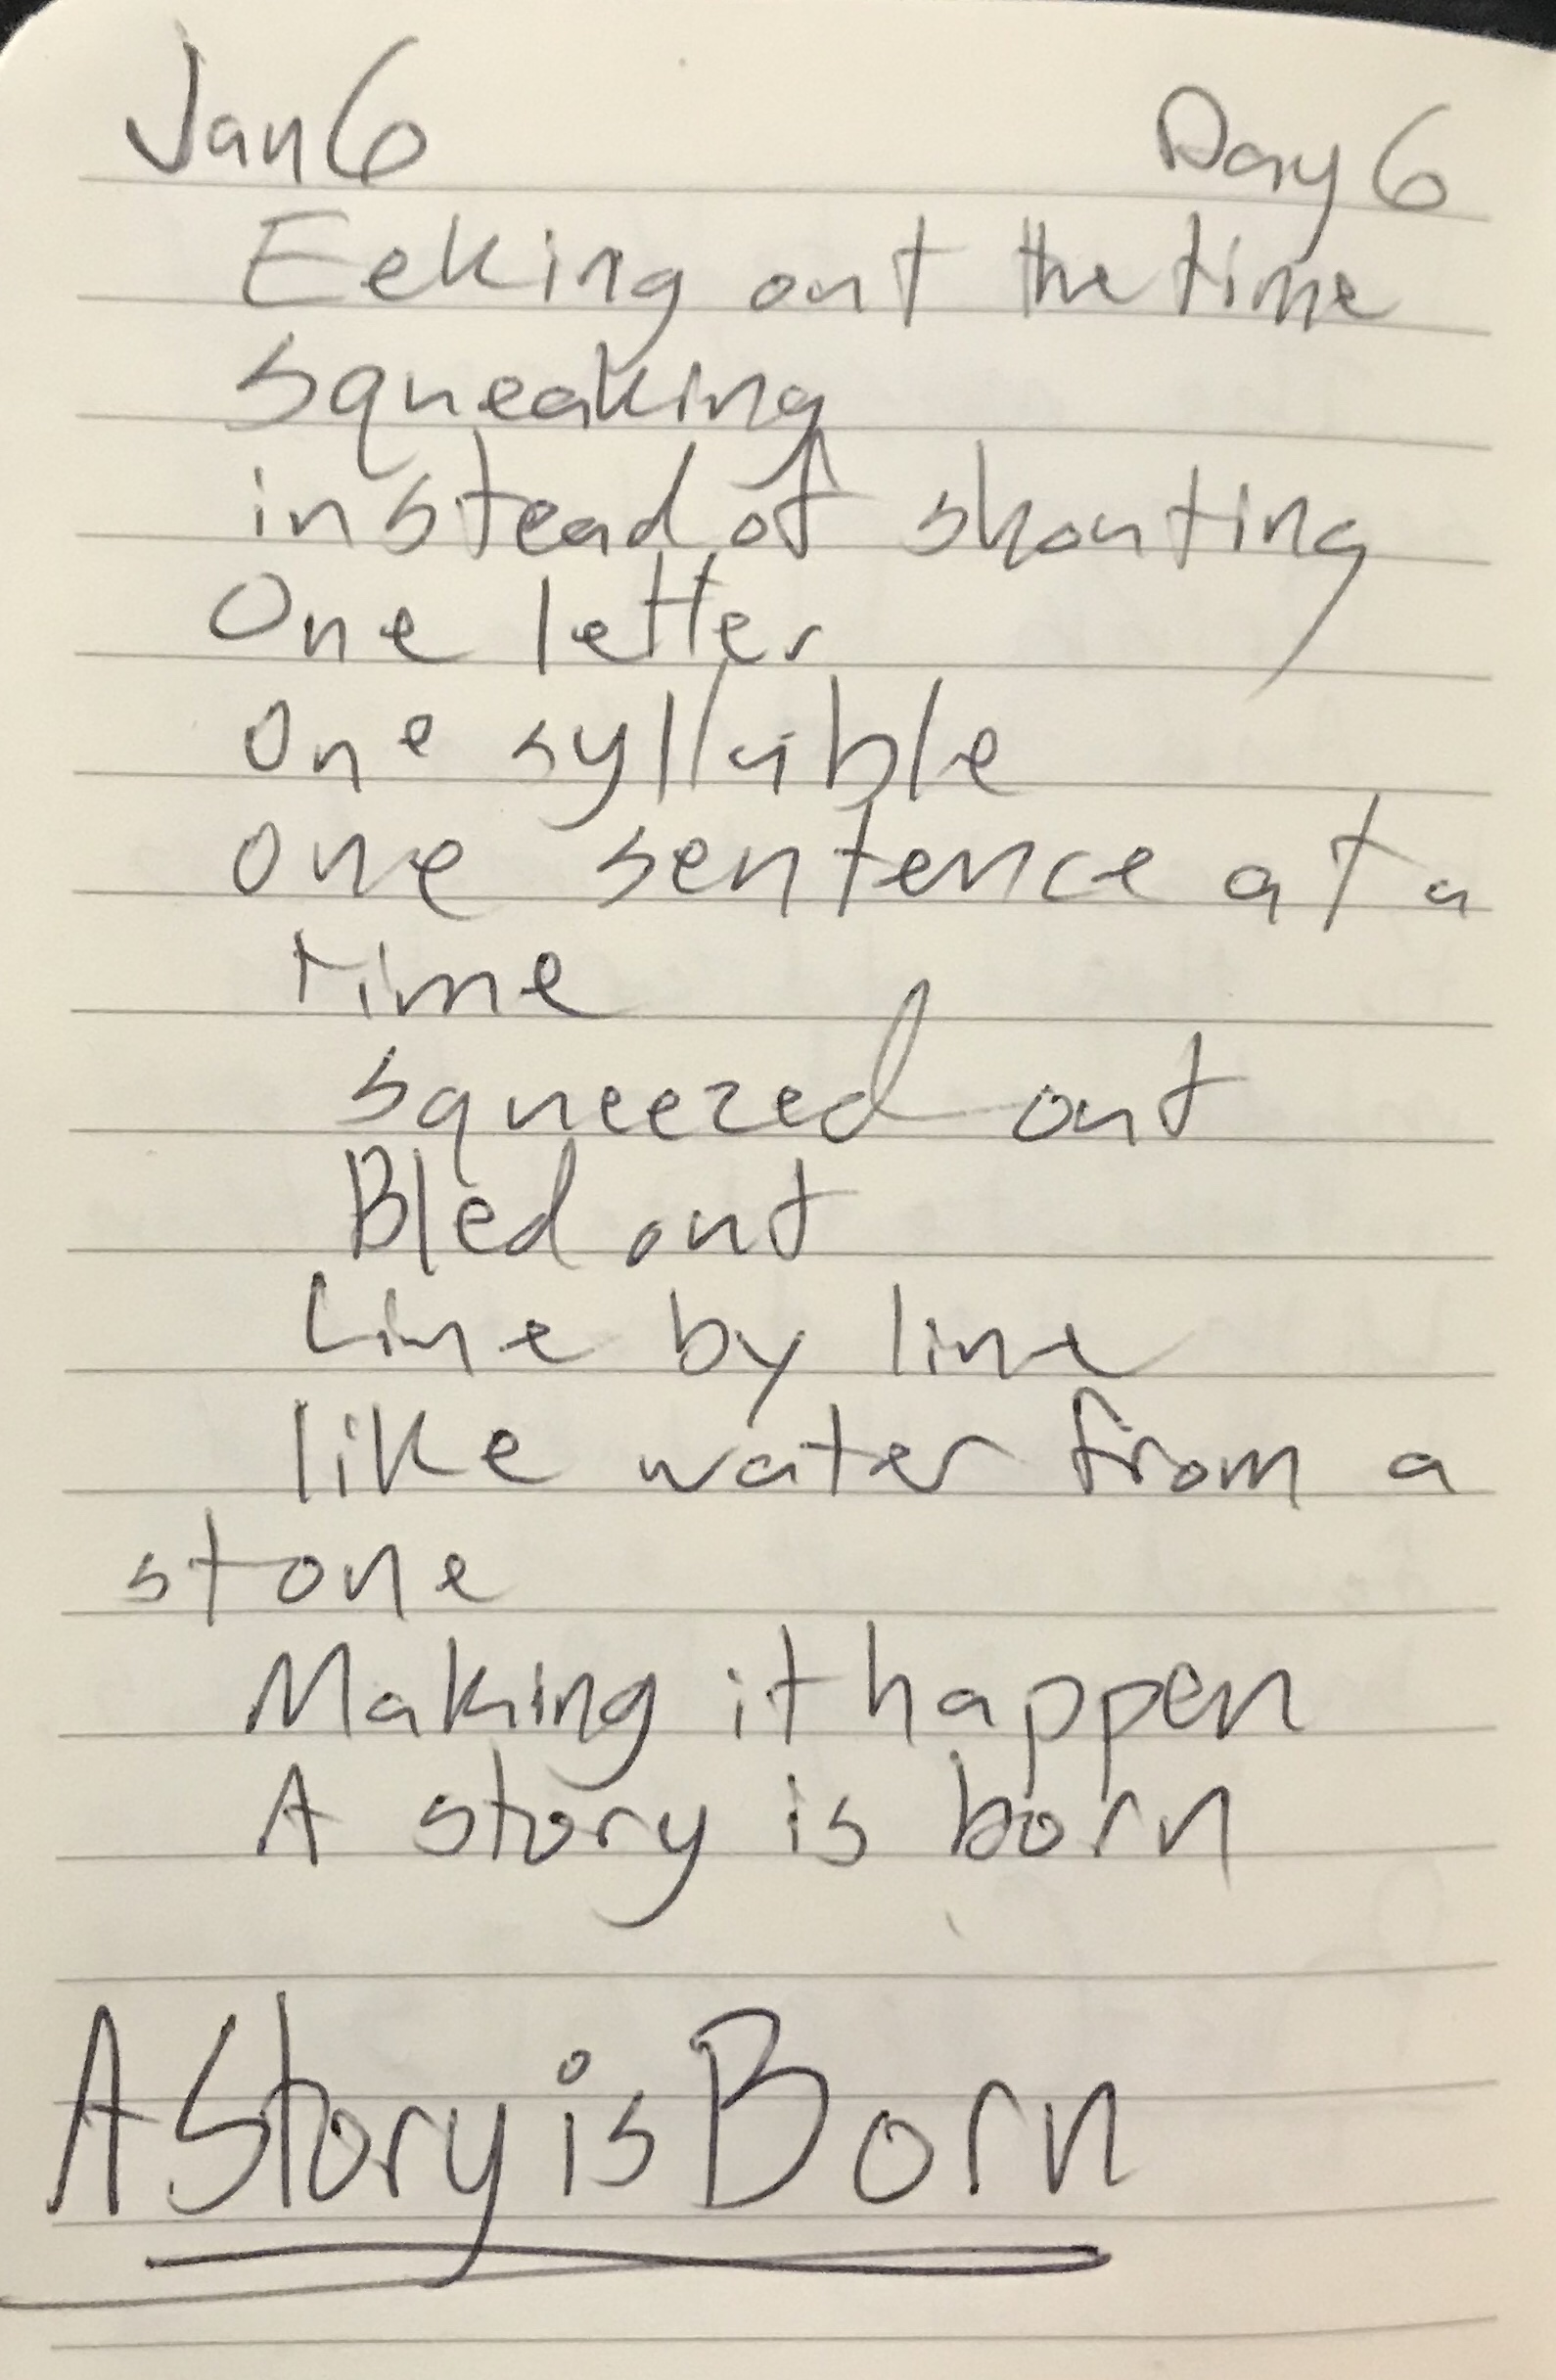 Jan 6 Day 6
Eeking out the time
squeaking
instead of shouting
One letter
One syllable
one sentence at a
time
squeezed out
Bled out
Line by line
like water from a
stone
Making it happen
A story is born
A Story is Born